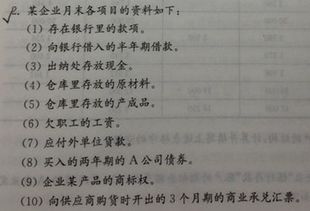 2. 某企业月末各项目的资料如下：
(1) 存在银行里的款项。
(2) 向银行借入的半年期借款。
(3) 出纳处存放现金。
(4) 仓库里存放的原材料。
(5) 仓库里存放的产成品。
(6) 欠职工的工资。
(7) 应付外单位货款。
(8) 买入的两年期的 A 公司债券。
(9) 企业某产品的商标权。
(10) 向供应商购货时开出的 3 个月期的商业承兑汇票。